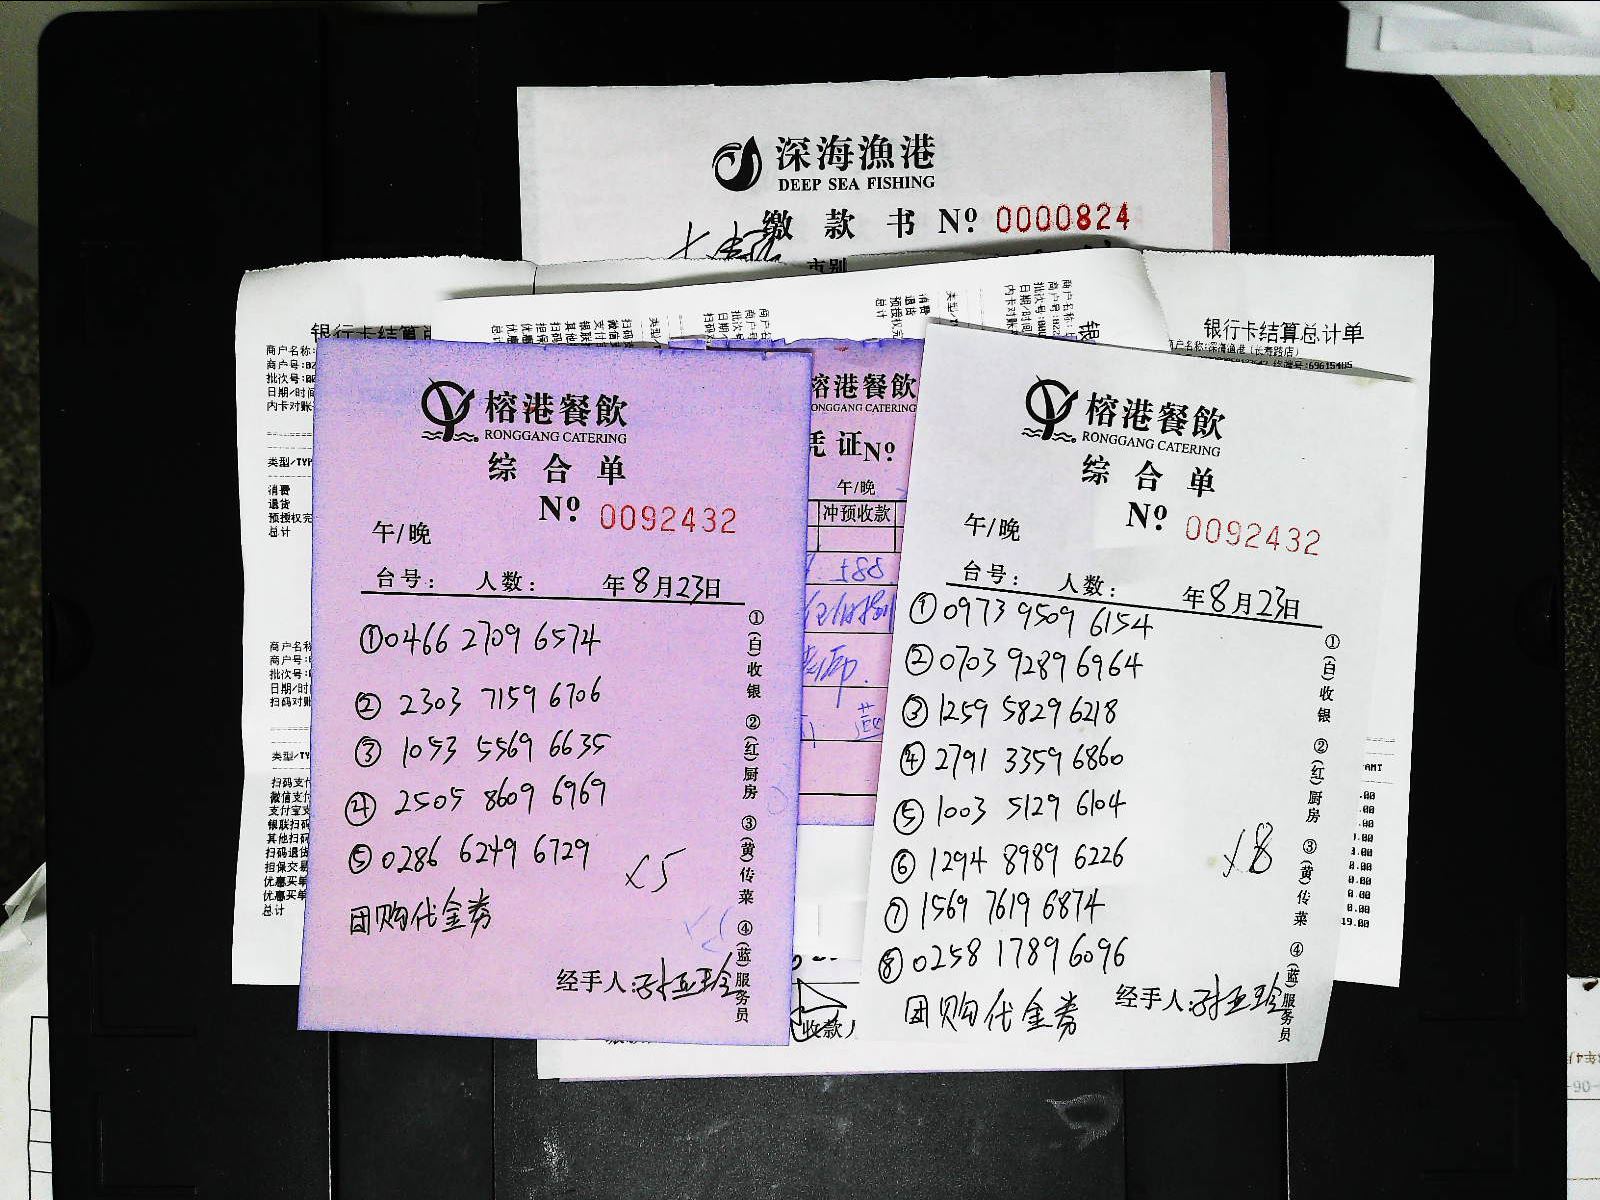 深海漁港
DEEP SEA FISHING
缴 款 书 Nº 0000824
市别
银行卡结算总计单
商户名称:
商户号:
批次号:
日期/时间
内卡对账
类型/TYP
消费
退货
预授权完
总计
商户名称
商户号:
批次号:
日期/时间
扫码对账
类型/TY
扫码支付
微信支付
支付宝支
银联扫码
其他扫码
扫码退货
担保交易
优惠买单
优惠买单
总计
榕港餐飲
RONGGANG CATERING
综 合 单
Nº 0092432
午/晚
台号: 人数: 年8月23日
①0466 2709 6574
② 2303 7159 6706
③ 1053 5569 6635
④ 2505 8609 6969
⑤ 0286 6249 6729
×5
团购代金券
经手人:
①(白)收银 ②(红)厨房 ③(黄)传菜 ④(蓝)服务员
榕港餐飲
RONGGANG CATERING
凭 证Nº
午/晚
冲预收款
收款人
银行卡结算总计单
商户名称:深海渔港(长寿路店)
AMT
.00
.00
.00
0.00
0.00
0.00
19.00
榕港餐飲
RONGGANG CATERING
综 合 单
Nº 0092432
午/晚
台号: 人数: 年8月23日
① 0973 9509 6154
② 0703 9289 6964
③ 1259 5829 6218
④ 2791 3359 6860
⑤ 1003 5129 6104
⑥ 1294 8989 6226
⑦ 1569 7619 6874
⑧ 0258 1789 6096
×8
团购代金券
经手人:
①(白)收银 ②(红)厨房 ③(黄)传菜 ④(蓝)服务员